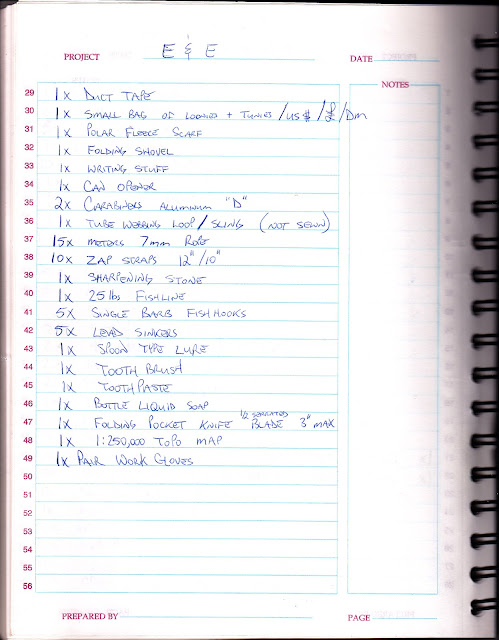 PROJECT E & E DATE
NOTES
29 1x DUCT TAPE
30 1x SMALL BAG OF LOONIES + TUNIES / US $ / £ / DM
31 1x POLAR FLEECE SCARF
32 1x FOLDING SHOVEL
33 1x WRITING STUFF
34 1x CAN OPENER
35 2x CARABINERS ALUMINUM "D"
36 1x TUBE WEBBING LOOP / SLING (NOT SEWN)
37 15x METERS 7mm ROPE
38 10x ZAP STRAPS 12"/10"
39 1x SHARPENING STONE
40 1x 25 lbs FISHLINE
41 5x SINGLE BARB FISH HOOKS
42 5x LEAD SINKERS
43 1x SPOON TYPE LURE
44 1x TOOTH BRUSH
45 1x TOOTHPASTE
46 1x BOTTLE LIQUID SOAP
47 1x FOLDING POCKET KNIFE 1/2 SERRATED BLADE 3" MAX
48 1x 1:250,000 TOPO MAP
49 1x PAIR WORK GLOVES
50
51
52
53
54
55
56
PREPARED BY PAGE